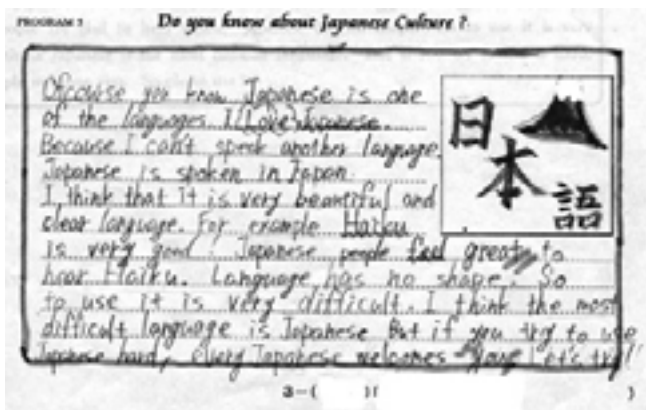 PROGRAM 7
Do you know about Japanese Culture?
Ofcourse you know Japanese is one
of the languages. I (Love) Japanese.
Because I can't speak another language.
Japanese is spoken in Japan.
I think that it is very beautiful and
clear language. For example Haiku
is very good! Japanese people feel great to
hear Haiku. Language has no shape. So
to use it is very difficult. I think the most
difficult language is Japanese But if you try to use
Japanese hard, every Japanese welcomes you! Let's try!!
日本語
3-( )( )